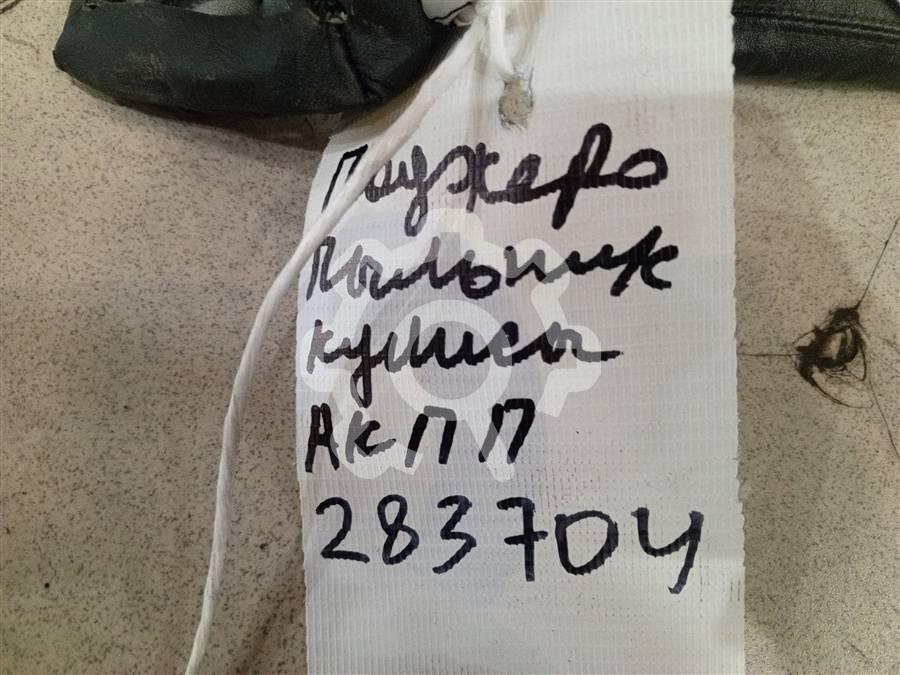 Паджеро
Пыльник
кулисы
АКПП
283704